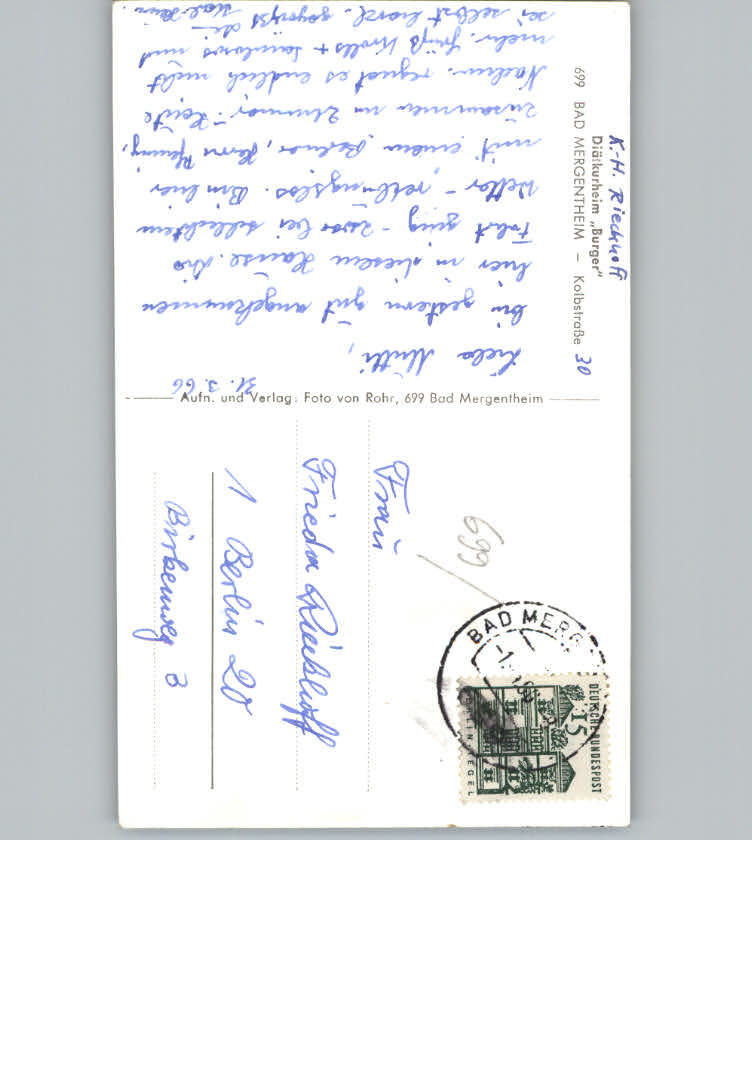 K.-H. Rieckhoff
Diätkurheim „Burger"
699 BAD MERGENTHEIM – Kolbstraße 30
31.3.66
Liebe Mutti,
bin gestern gut angekommen
hier in diesem Hause. Die
Fahrt ging - zwar bei schlechtem
Wetter - reibungslos. Bin hier
mit einem Berliner, Herrn
zusammen im Zimmer. Heute
Nachm. regnet es endlich nicht
mehr. Grüß Krolls + und
sei selbst herzl. gegrüßt
Aufn. und Verlag: Foto von Rohr, 699 Bad Mergentheim
Frau
Frieda Rieckhoff
1 Berlin 20
Birkenweg 3
699
BAD MERG
DEUTSCHE BUNDESPOST
15
BERLIN TEGEL